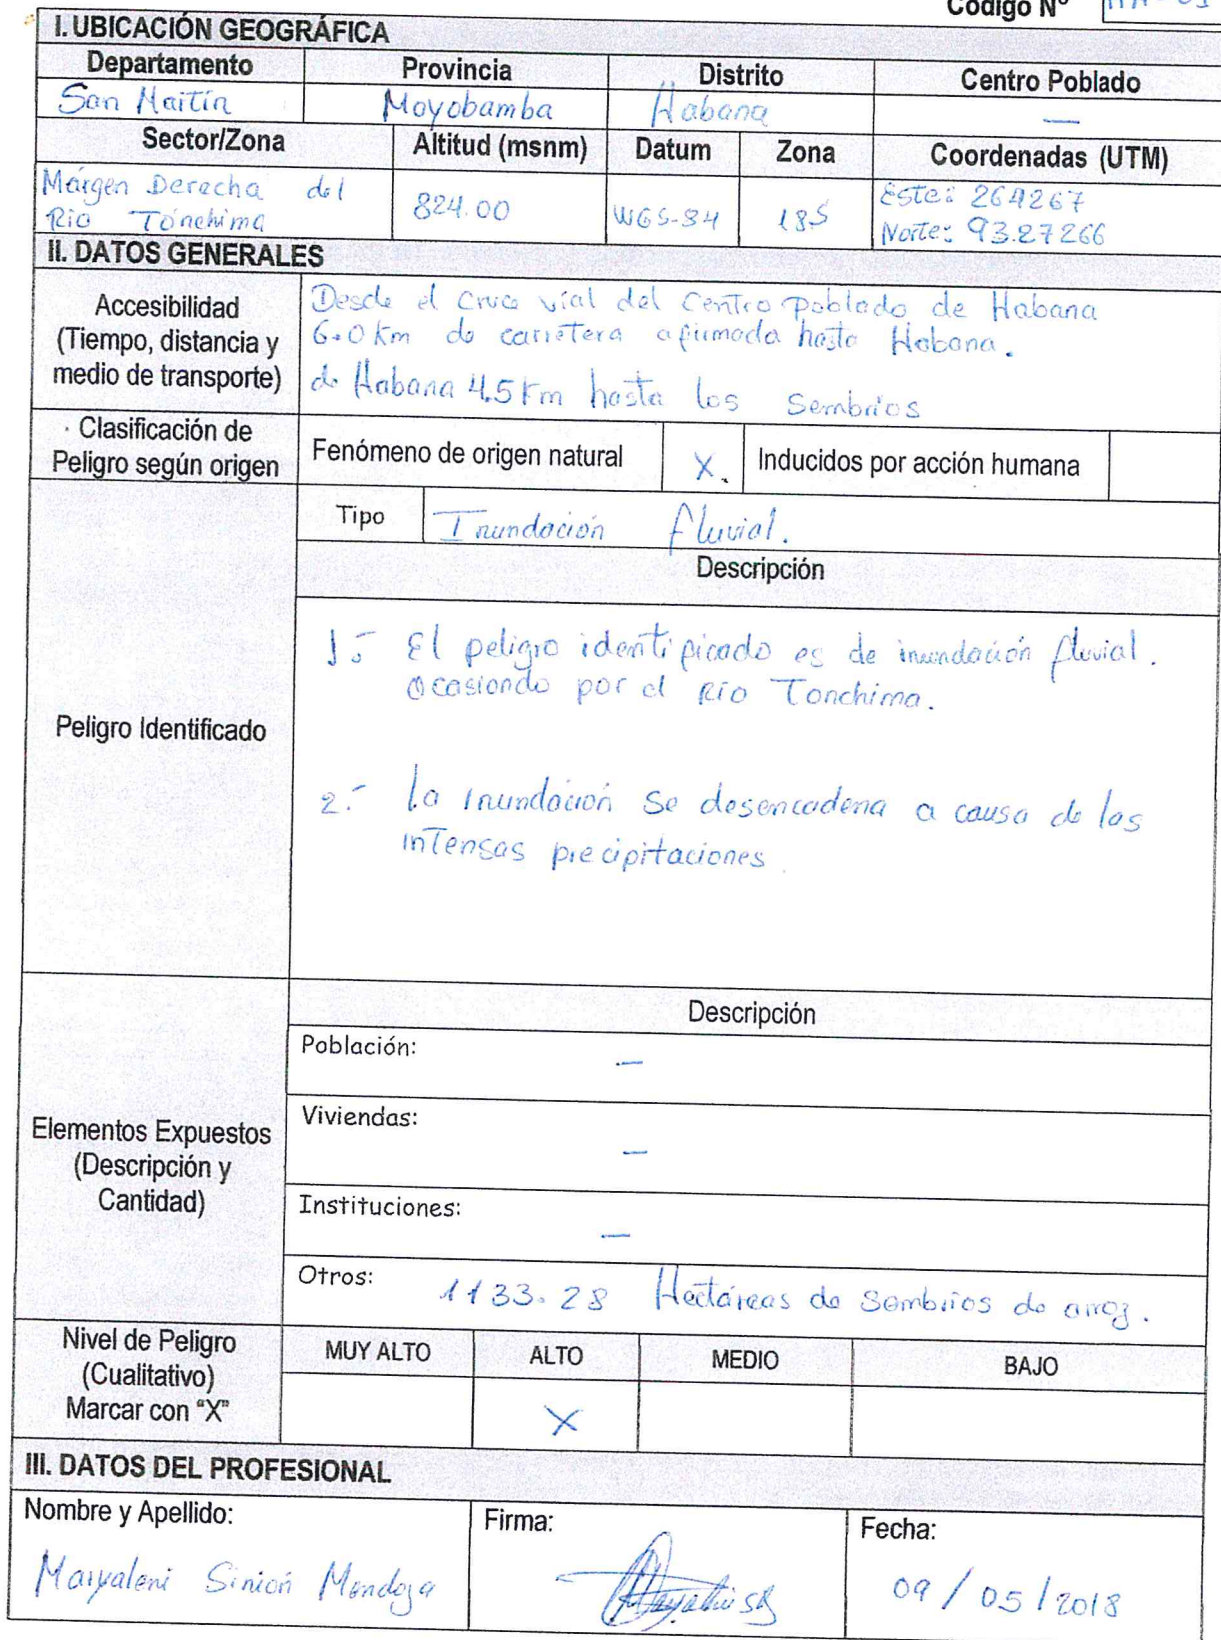 Código Nº
I. UBICACIÓN GEOGRÁFICA
Departamento Provincia Distrito Centro Poblado
San Martín Moyobamba Habana —
Sector/Zona Altitud (msnm) Datum Zona Coordenadas (UTM)
Márgen Derecha del Río Tónchima 824.00 WGS-84 18S Este: 264267
Norte: 93.27266
II. DATOS GENERALES
Accesibilidad
(Tiempo, distancia y
medio de transporte)
Desde el Cruce vial del Centro Poblado de Habana
6.0 Km de carretera afirmada hasta Habana.
de Habana 4.5 Km hasta los Sembríos
Clasificación de
Peligro según origen
Fenómeno de origen natural X. Inducidos por acción humana
Peligro Identificado
Tipo Inundación fluvial.
Descripción
1.- El peligro identificado es de inundación fluvial.
Ocasiondo por el Río Tonchima.
2.- La Inundación Se desencadena a causa de las
intensas precipitaciones
Elementos Expuestos
(Descripción y
Cantidad)
Descripción
Población: —
Viviendas: —
Instituciones: —
Otros: 1133.28 Hectáreas de Sembríos de arroz.
Nivel de Peligro
(Cualitativo)
Marcar con "X"
MUY ALTO ALTO MEDIO BAJO
X
III. DATOS DEL PROFESIONAL
Nombre y Apellido: Firma: Fecha:
Maryaleni Sinión Mendoza 09/05/2018